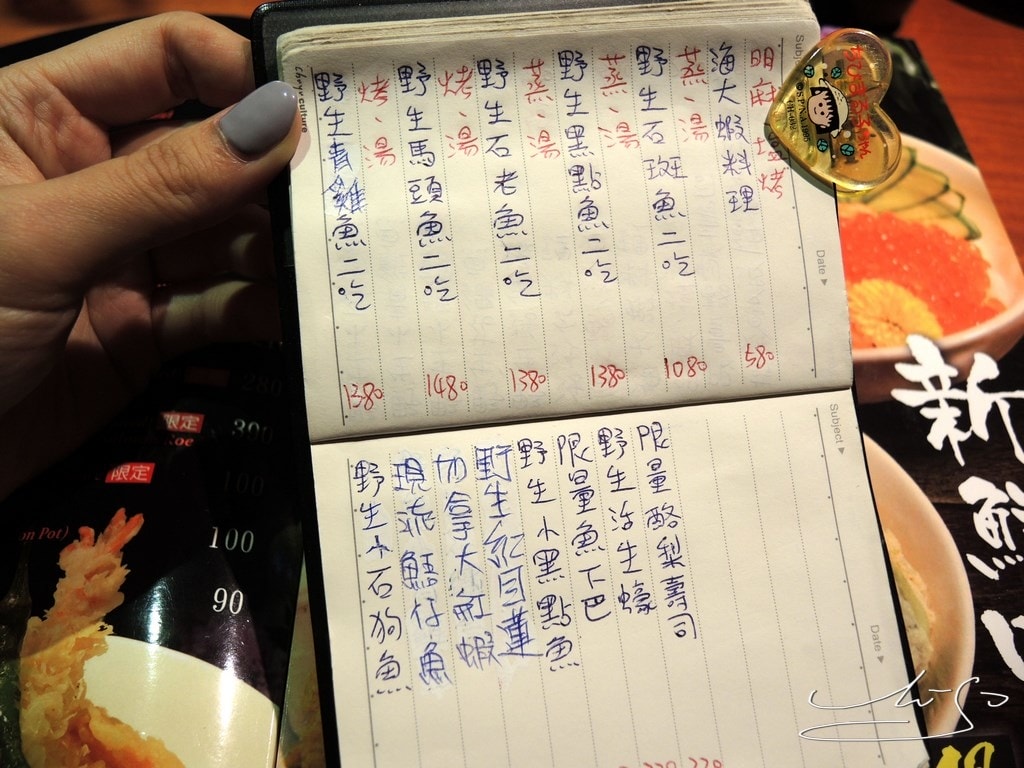 明麻 塩烤
海大蝦料理
580
蒸、湯
野生石斑魚二吃
1080
蒸、湯
野生黑點魚二吃
1380
蒸、湯
野生石老魚二吃
1380
烤、湯
野生馬頭魚二吃
1480
烤、湯
野生青雞魚二吃
1380
Subj
Date
chuyu culture
限量酪梨壽司
野生活生蠔
限量魚下巴
野生小黑點魚
野生紅目蓮
加拿大紅蝦
現流鱔仔魚
野生小石狗魚
Subject
Date
限定
oe
390
限定
100
on Pot)
100
90
280
新
鮮